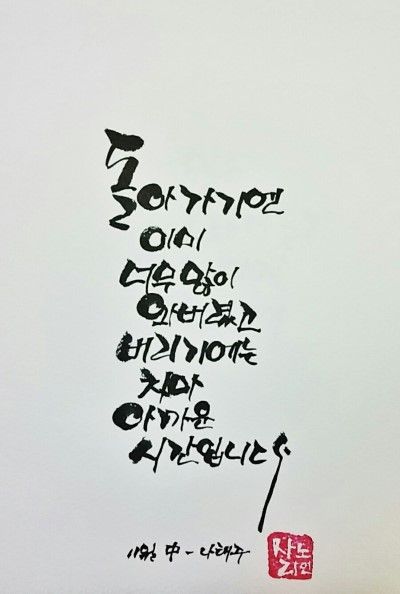 돌아가기엔
이미
너무 많이
와버렸고
버리기에는
차마
아까운
시간입니다
11월 中 - 나태주